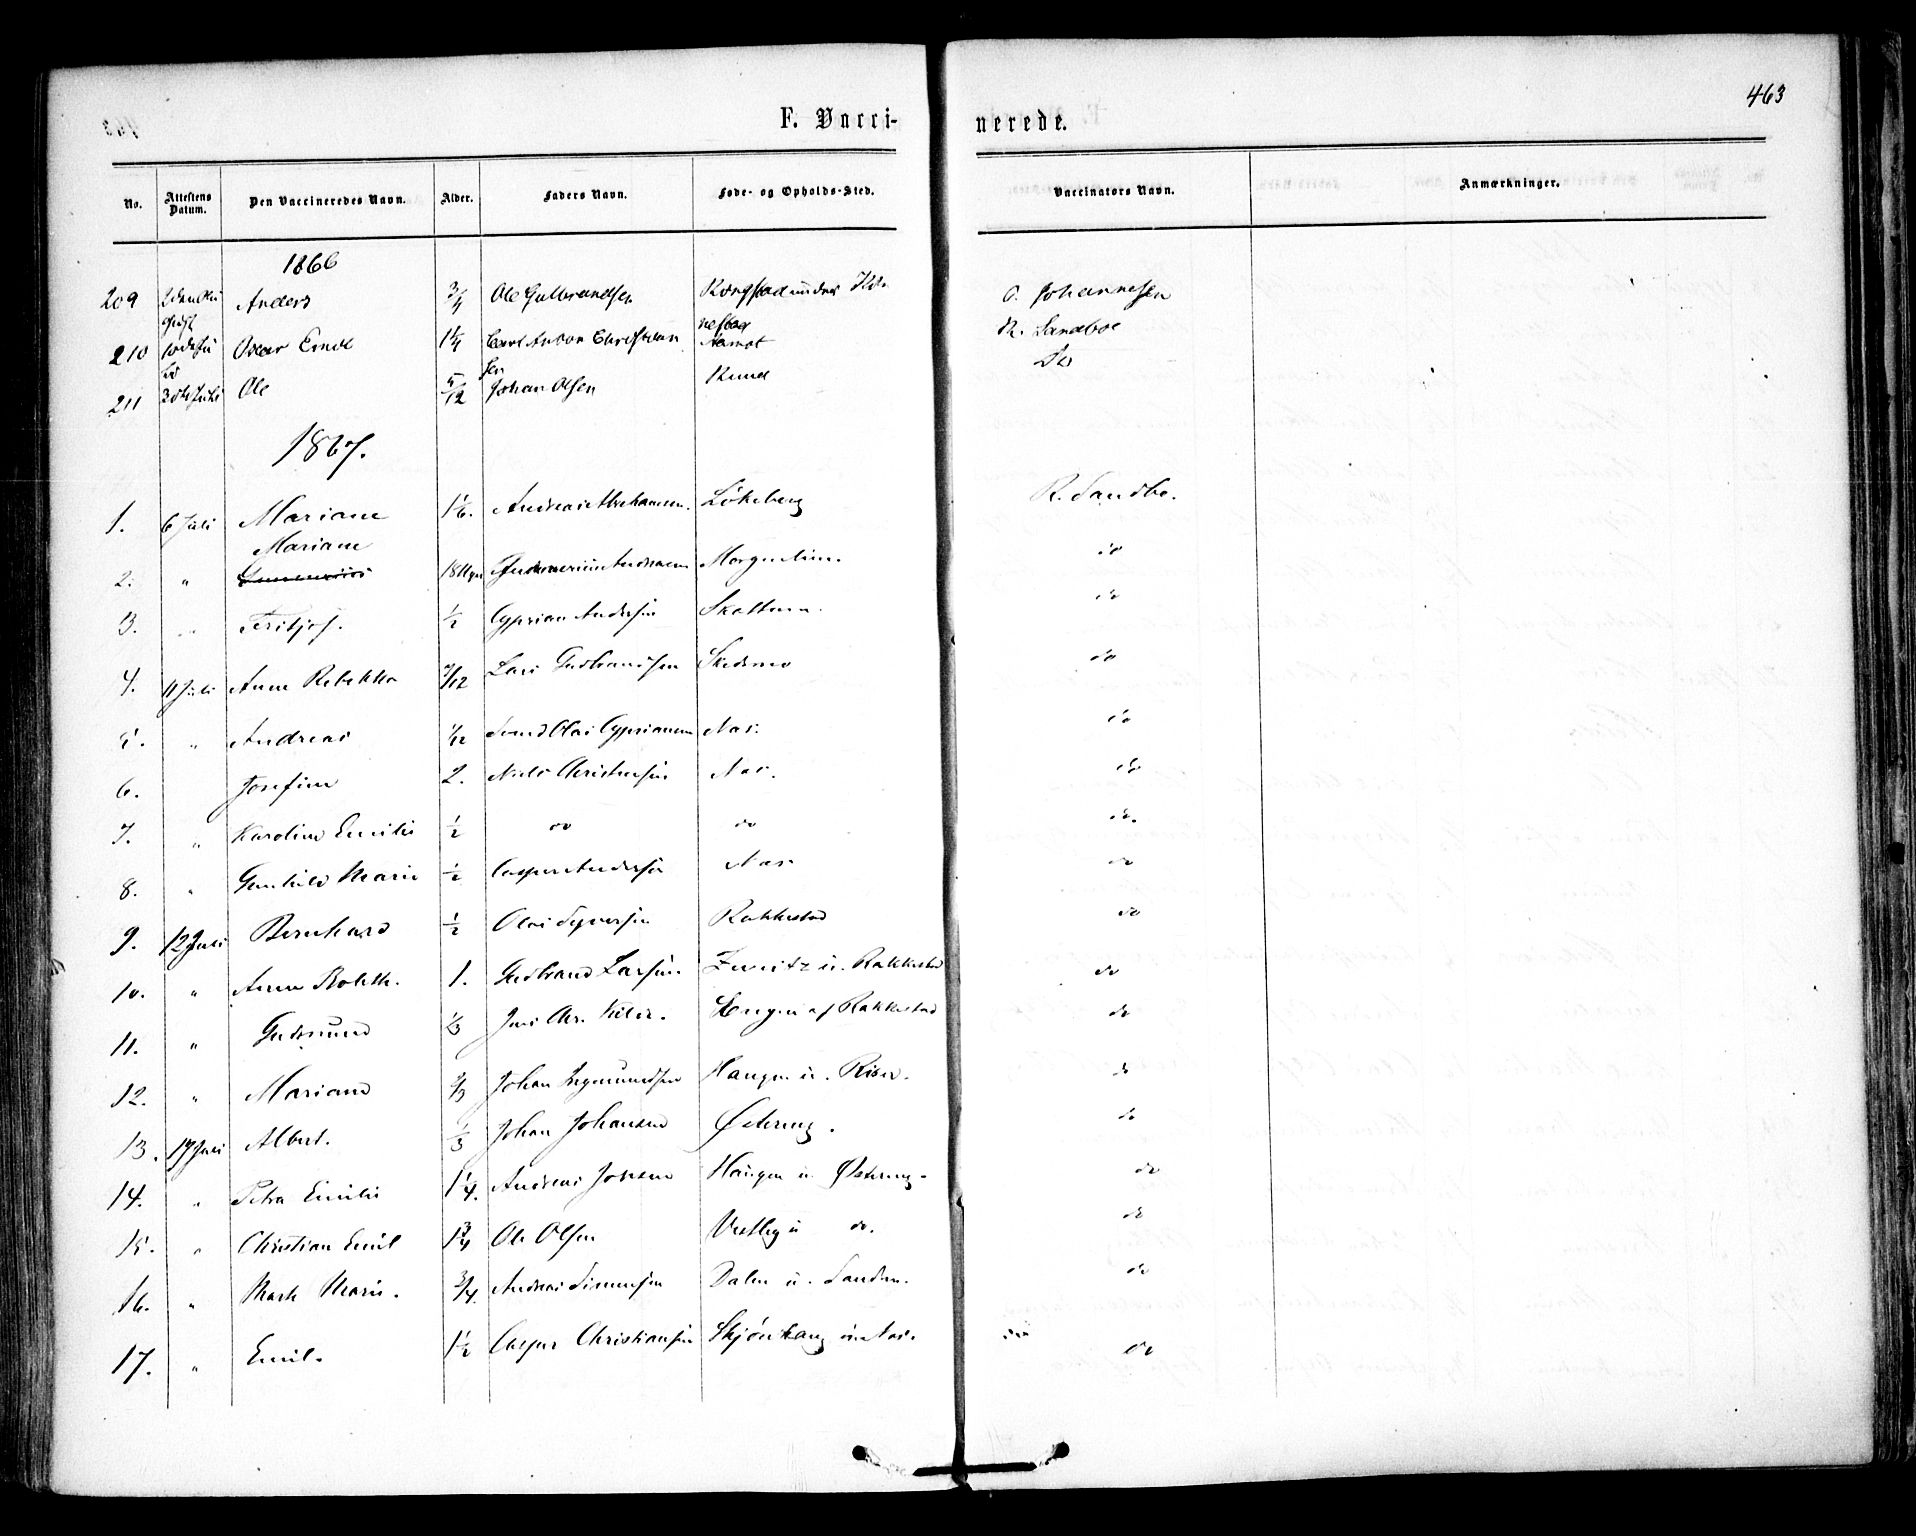 463
F. Vacci- nerede.
No. Attestens Datum. Den Vaccineredes Navn. Alder. Faders Navn. Føde- og Opholds-Sted. Vaccinators Navn. Anmærkninger.
1866
209 Anders 3/4 Ole Gulbrandsen O. Johannesen
210 Oscar Emil 1 1/4 Carl Anton Christian sen Aamot R. Sandboe
211 30te Juli Ole 5/12 Johan Olsen Ruud Do
1867.
1. 6 Juli Mariane 1 1/6. Andreas Abrahamsen. Lökeberg R. Sandbo.
Mariane
2. " do
3. " Fritjof. 1/2 Cyprian Andersen do
4. 11 Juli Anne Rebekka 7/12 Lars Gudbrandsen Skedsmo do
5. " Andreas 1/12 Svend Olai Cypriansen Næs. do
6. Josefine 2. Niels Christensen Næs. do
7. " Karoline Emilie 1/2 do do do.
8. " Gunhild Marie 1/2 Casper Andersen Næs. do
9. 12 Juli Bernhard 1/2 Olai Syversen Rakkestad do
10. " Anne Bolette. 1. Gudbrand Larsen. u. Rakkestad do
11. " Gudmund 1/3 Jens Chr. Engen af Rakkestad do
12. " Mariane 2/3 Johan Ingemundsen Haugen u. Riser. do
13. 17 Juli Albert. 1/3 Johan Johansen Østereng. do
14. " Petra Emilie 1 1/4. Andreas Jonsen Haugen u. Østereng. do
15. " Christian Emil 1 3/4 Ole Olsen Vestby u do. do
16. " Marthe Marie. 3/4. Andreas Simensen Dalen u. Sanden. do
17. " Emil. 1 1/2 Casper Christiansen Skjönhaug u. Næs. do